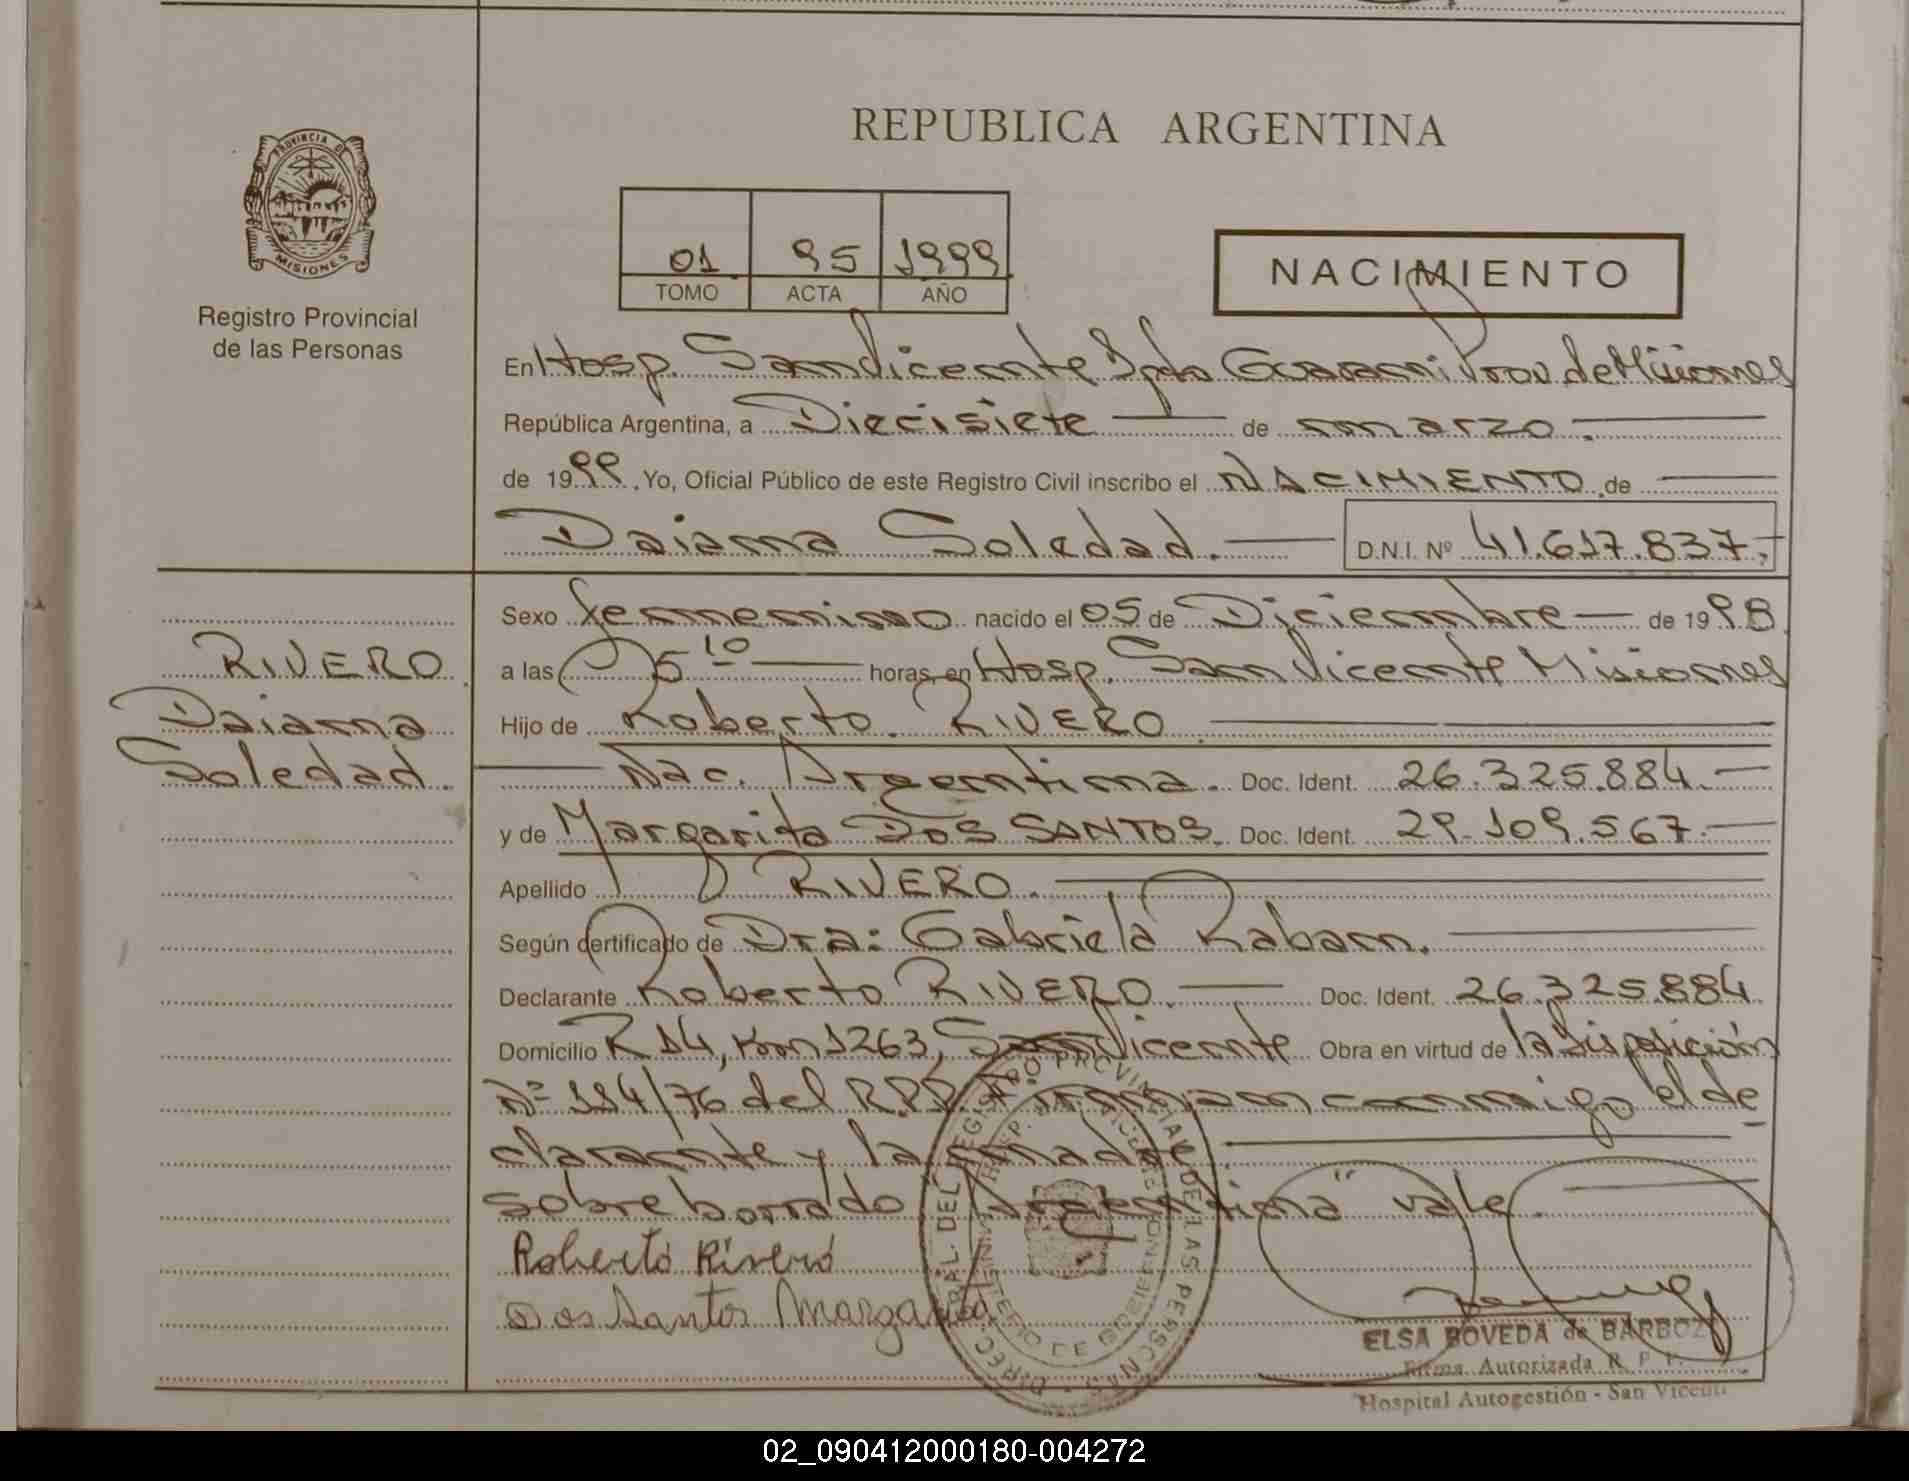 PROVINCIA DE
MISIONES
Registro Provincial
de las Personas
REPUBLICA ARGENTINA
01 95 1999
TOMO ACTA AÑO
NACIMIENTO
En Hosp. San Vicente Dpto Guarani Prov. de Misiones
República Argentina, a Diecisiete de marzo.
de 1999. Yo, Oficial Público de este Registro Civil inscribo el NACIMIENTO de
Daiana Soledad. D.N.I. Nº 41.617.837.-
RIVERO
Daiana
Soledad.
Sexo femenino nacido el 05 de Diciembre de 1998
a las 5 10 horas, en Hosp. San Vicente Misiones
Hijo de Roberto RIVERO
Nac. Argentina. Doc. Ident. 26.325.884.
y de Margarita DOS SANTOS. Doc. Ident. 29.109.567.
Apellido RIVERO.
Según certificado de Dra: Gabriela Raban.
Declarante Roberto RIVERO. Doc. Ident. 26.325.884
Domicilio R 14, Km 1263, San Vicente Obra en virtud de la Disposición
Nº 114/76 del R.P.P. Firman conmigo el de
clarante y la madre.
sobreborrado "Argentina" vale.
Roberto Rivero
Dos Santos Margarita
ELSA BOVEDA de BARBOZA
Firma Autorizada R. P. P.
Hospital Autogestión - San Vicente
02_090412000180-004272